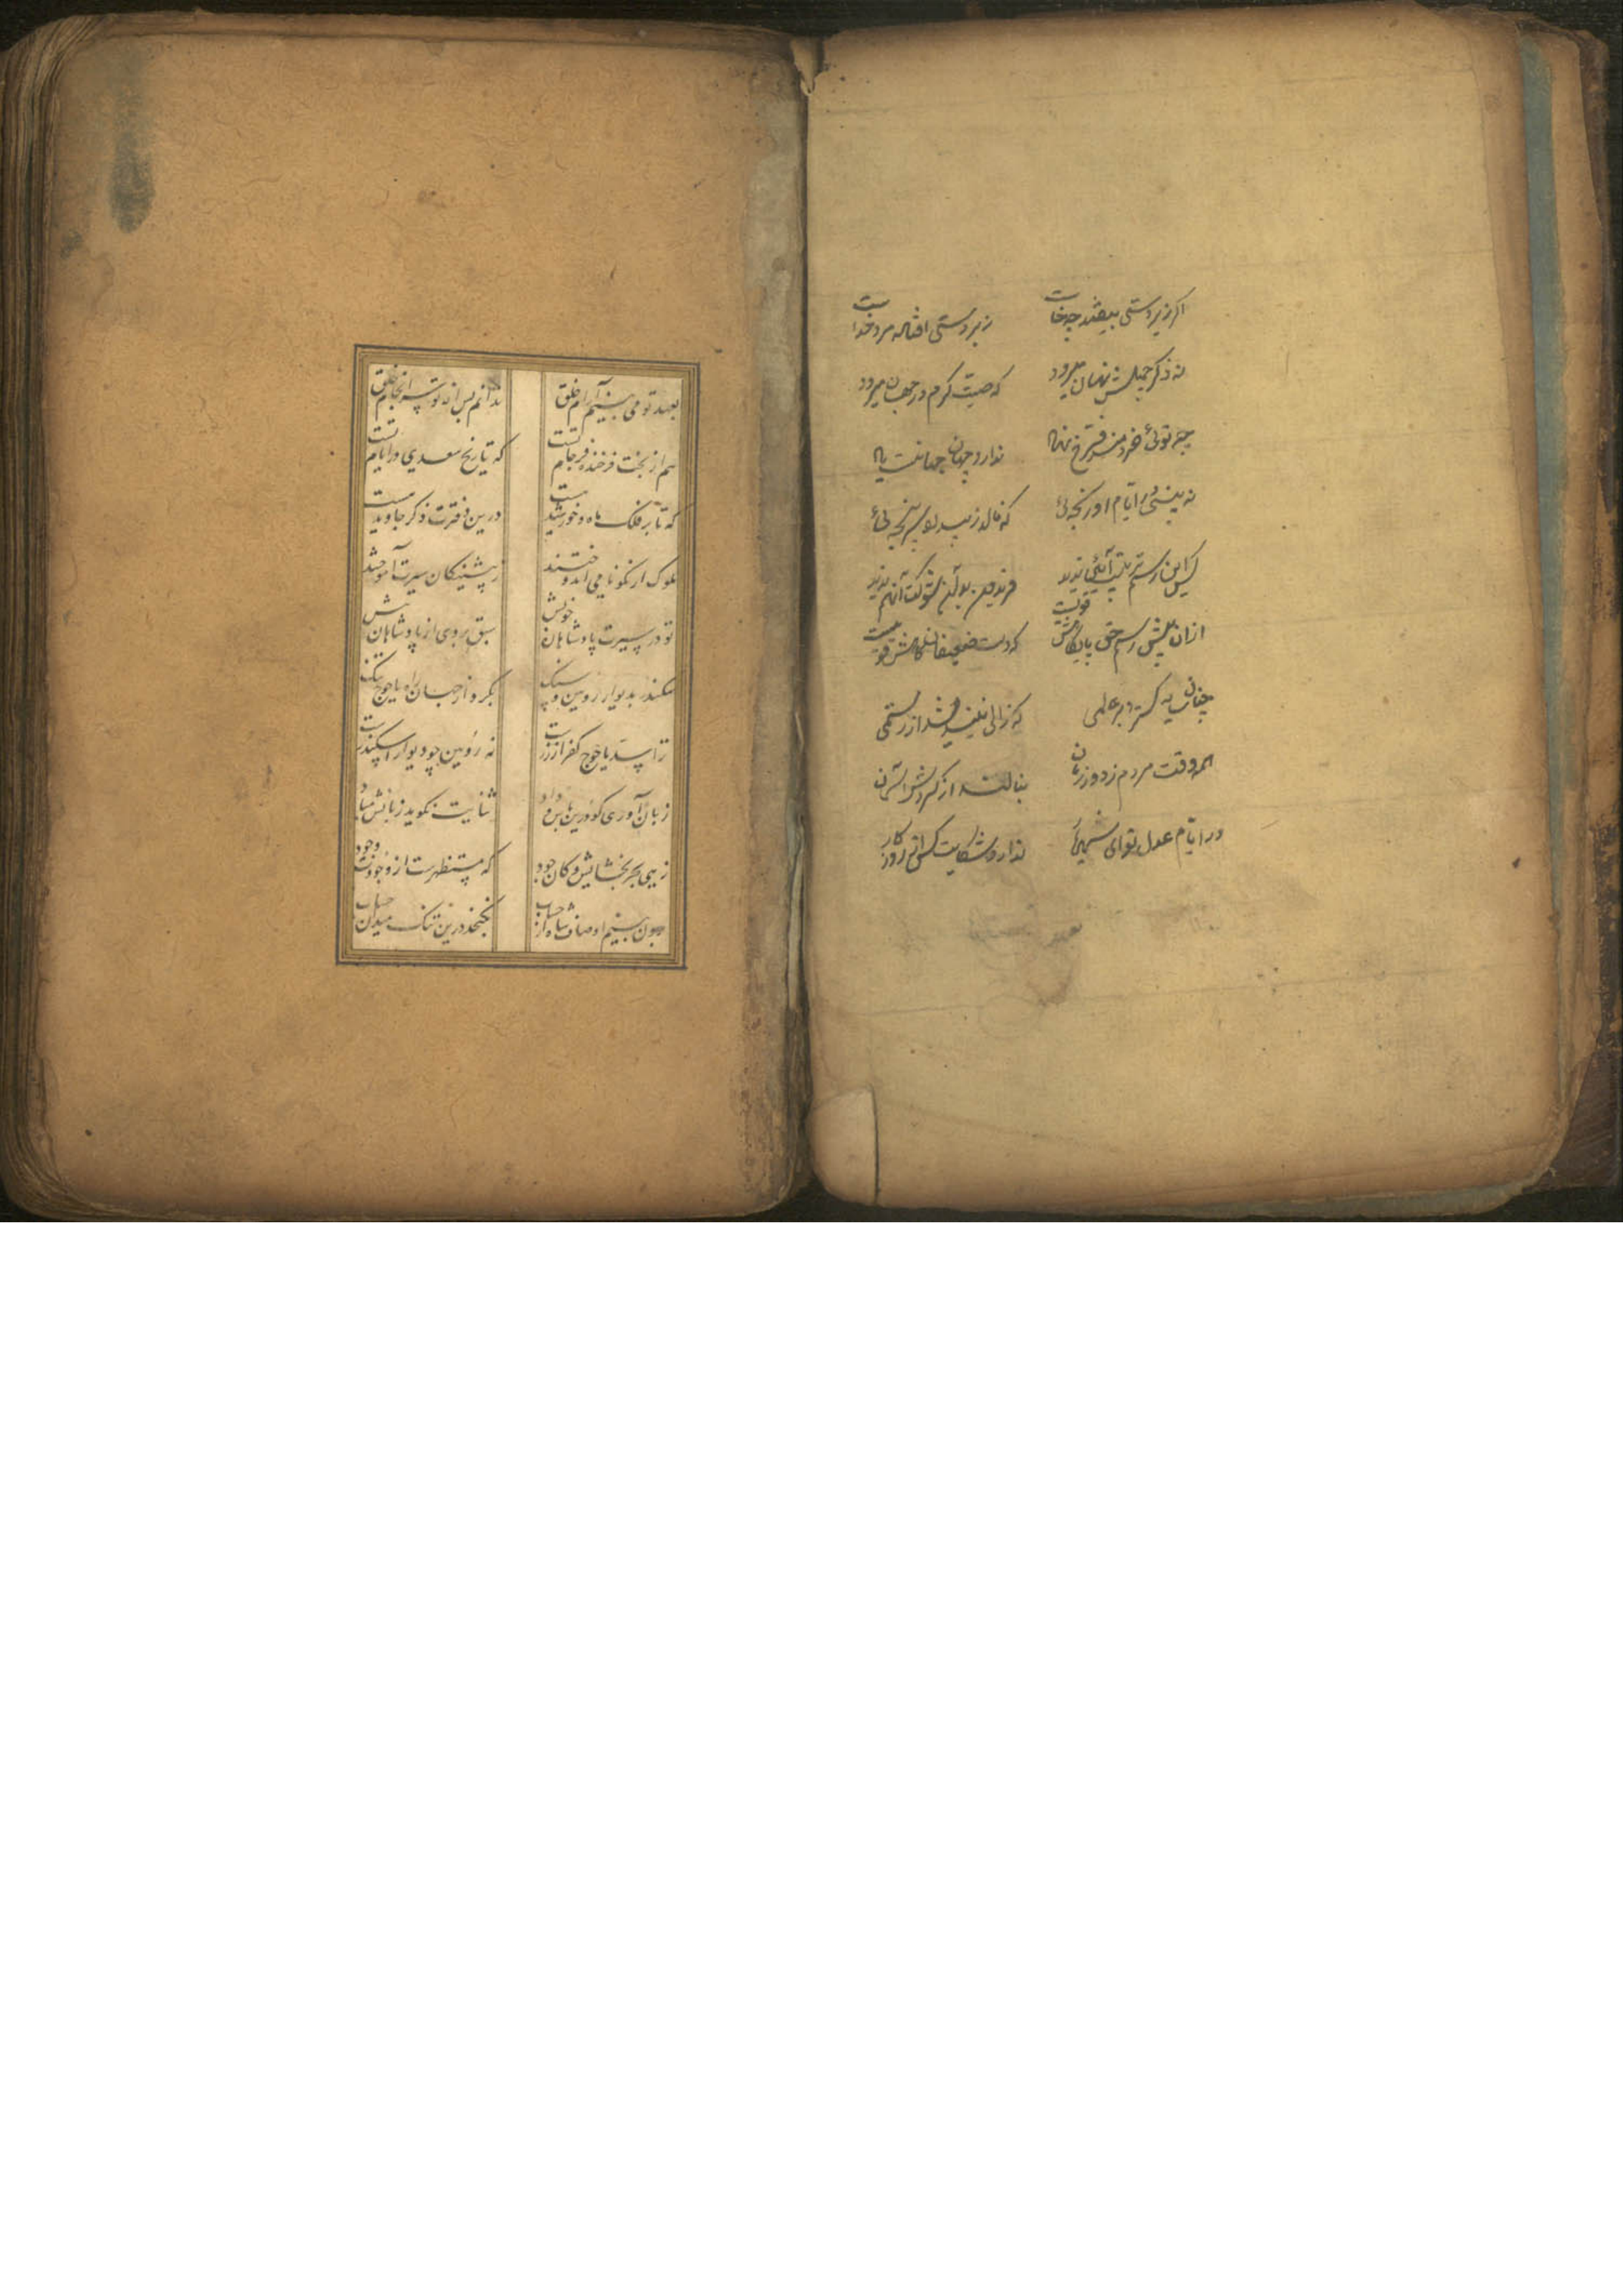 اگر زیردستی بیفتد چه خاست زبردستی افتاده مرد خداست
نه ذکر جمیلش نهان میرود که صیت کرم در جهان میرود
چنو توئی خردمند فرخ نهاد ندارد جهان تا جهانست یاد
نه بینی در ایام او رنجه ئی که نالد ز بیداد سرپنجه ئی
کس این رسم و ترتیب و آئین ندید فریدون با آن شوکت آنهم ندید
ازان پیش حق پایگاهش قویست که دست ضعیفان بجاهش قویست
چنان سایه گسترده بر عالمی که زالی نیندیشد از رستمی
همه وقت مردم ز دور زمان بنالند از گردش آسمان
در ایام عدل تو ای شهریار ندارد شکایت کس از روزگار
بعهد تو می بینم آرام خلق ندانم پس از تو سرانجام خلق
هم از بخت فرخنده فرجام تست که تاریخ سعدی در ایام تست
که تا بر فلک ماه و خورشید هست درین دفترت ذکر جاوید هست
ملوک ار نکونامی اندوختند ز پیشینگان سیرت آموختند
تو در سیرت پادشاهان خویش سبق بردی از پادشاهان پیش
سکندر بدیوار روئین و سنگ بکرد از جهان راه یاجوج تنگ
ترا سد یاجوج کفر از زرست نه روئین چو دیوار اسکندرست
زبان آوری کو درین باب داد ثنایت نگوید زبانش مباد
زهی بحر بخشایش و کان جود که مستظهرست از وجودت وجود
برون بینم اوصاف شاه از حساب نگنجد درین تنگ میدان